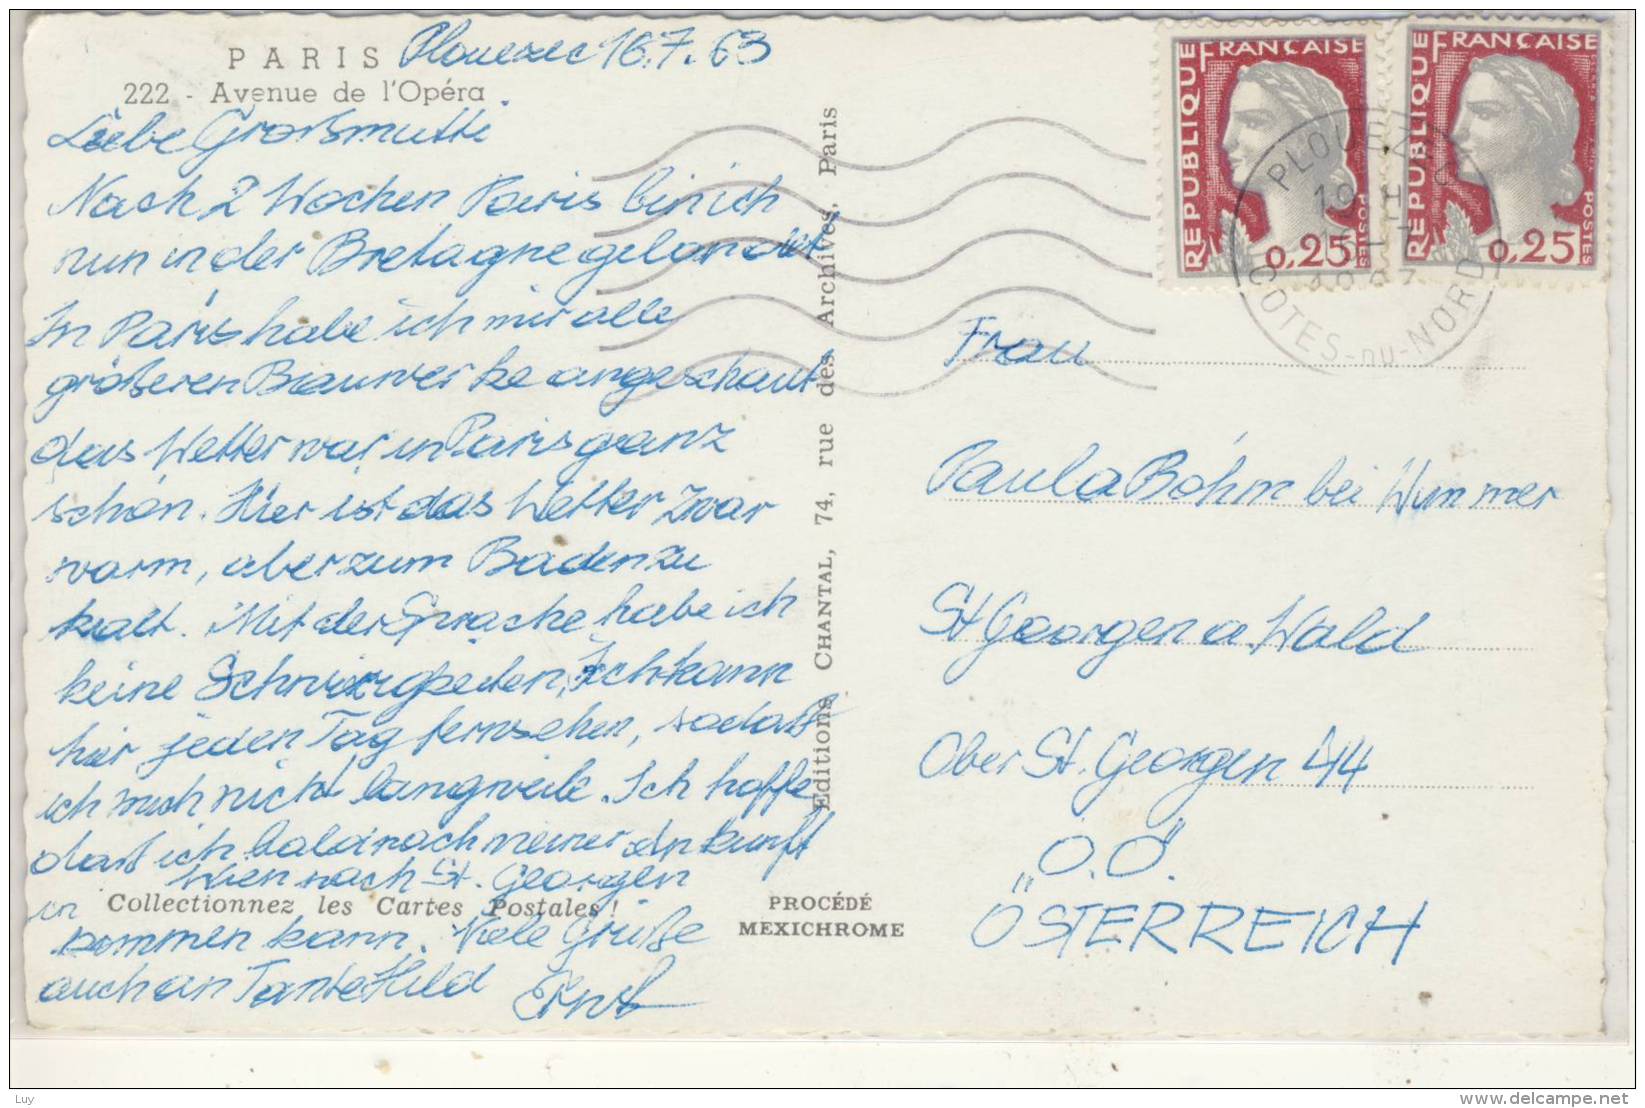 PARIS
222 - Avenue de l'Opéra
Plouezec 16.7.63
Liebe Großmutti
Nach 2 Wochen Paris bin ich
nun in der Bretagne gelandet
In Paris habe ich mir alle
größeren Bauwerke angeschaut
das Wetter war in Paris ganz
schön. Hier ist das Wetter zwar
warm, aber zum Baden zu
kalt. Mit der Sprache habe ich
keine Schwierigkeiten, Ich kann
hier jeden Tag fernsehen, sodaß
ich mich nicht langweile. Ich hoffe
daß ich bald nach meiner Ankunft
in Wien nach St. Georgen
Collectionnez les Cartes Postales !
kommen kann. Viele Grüße
auch an Tante Hild Ernst
Editions CHANTAL, 74, rue des Archives, Paris
PROCÉDÉ
MEXICHROME
RÉPUBLIQUE FRANÇAISE
0,25 POSTES
RÉPUBLIQUE FRANÇAISE
0,25 POSTES
19 H
COTES-DU-NORD
Frau
Paula Böhm bei Wimmer
St Georgen a. Wald
Ober St. Georgen 44
O.Ö.
ÖSTERREICH
Luy
www.delcampe.net